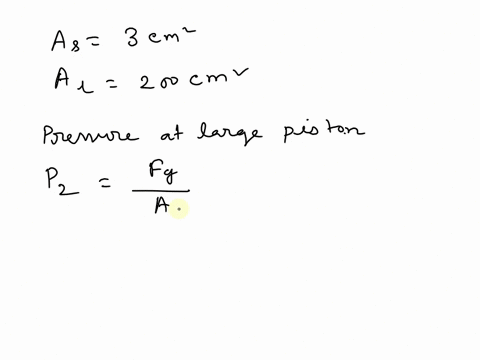 As = 3 cm²
Al = 200 cm²
Pressure at large piston
P2 = Fg / A